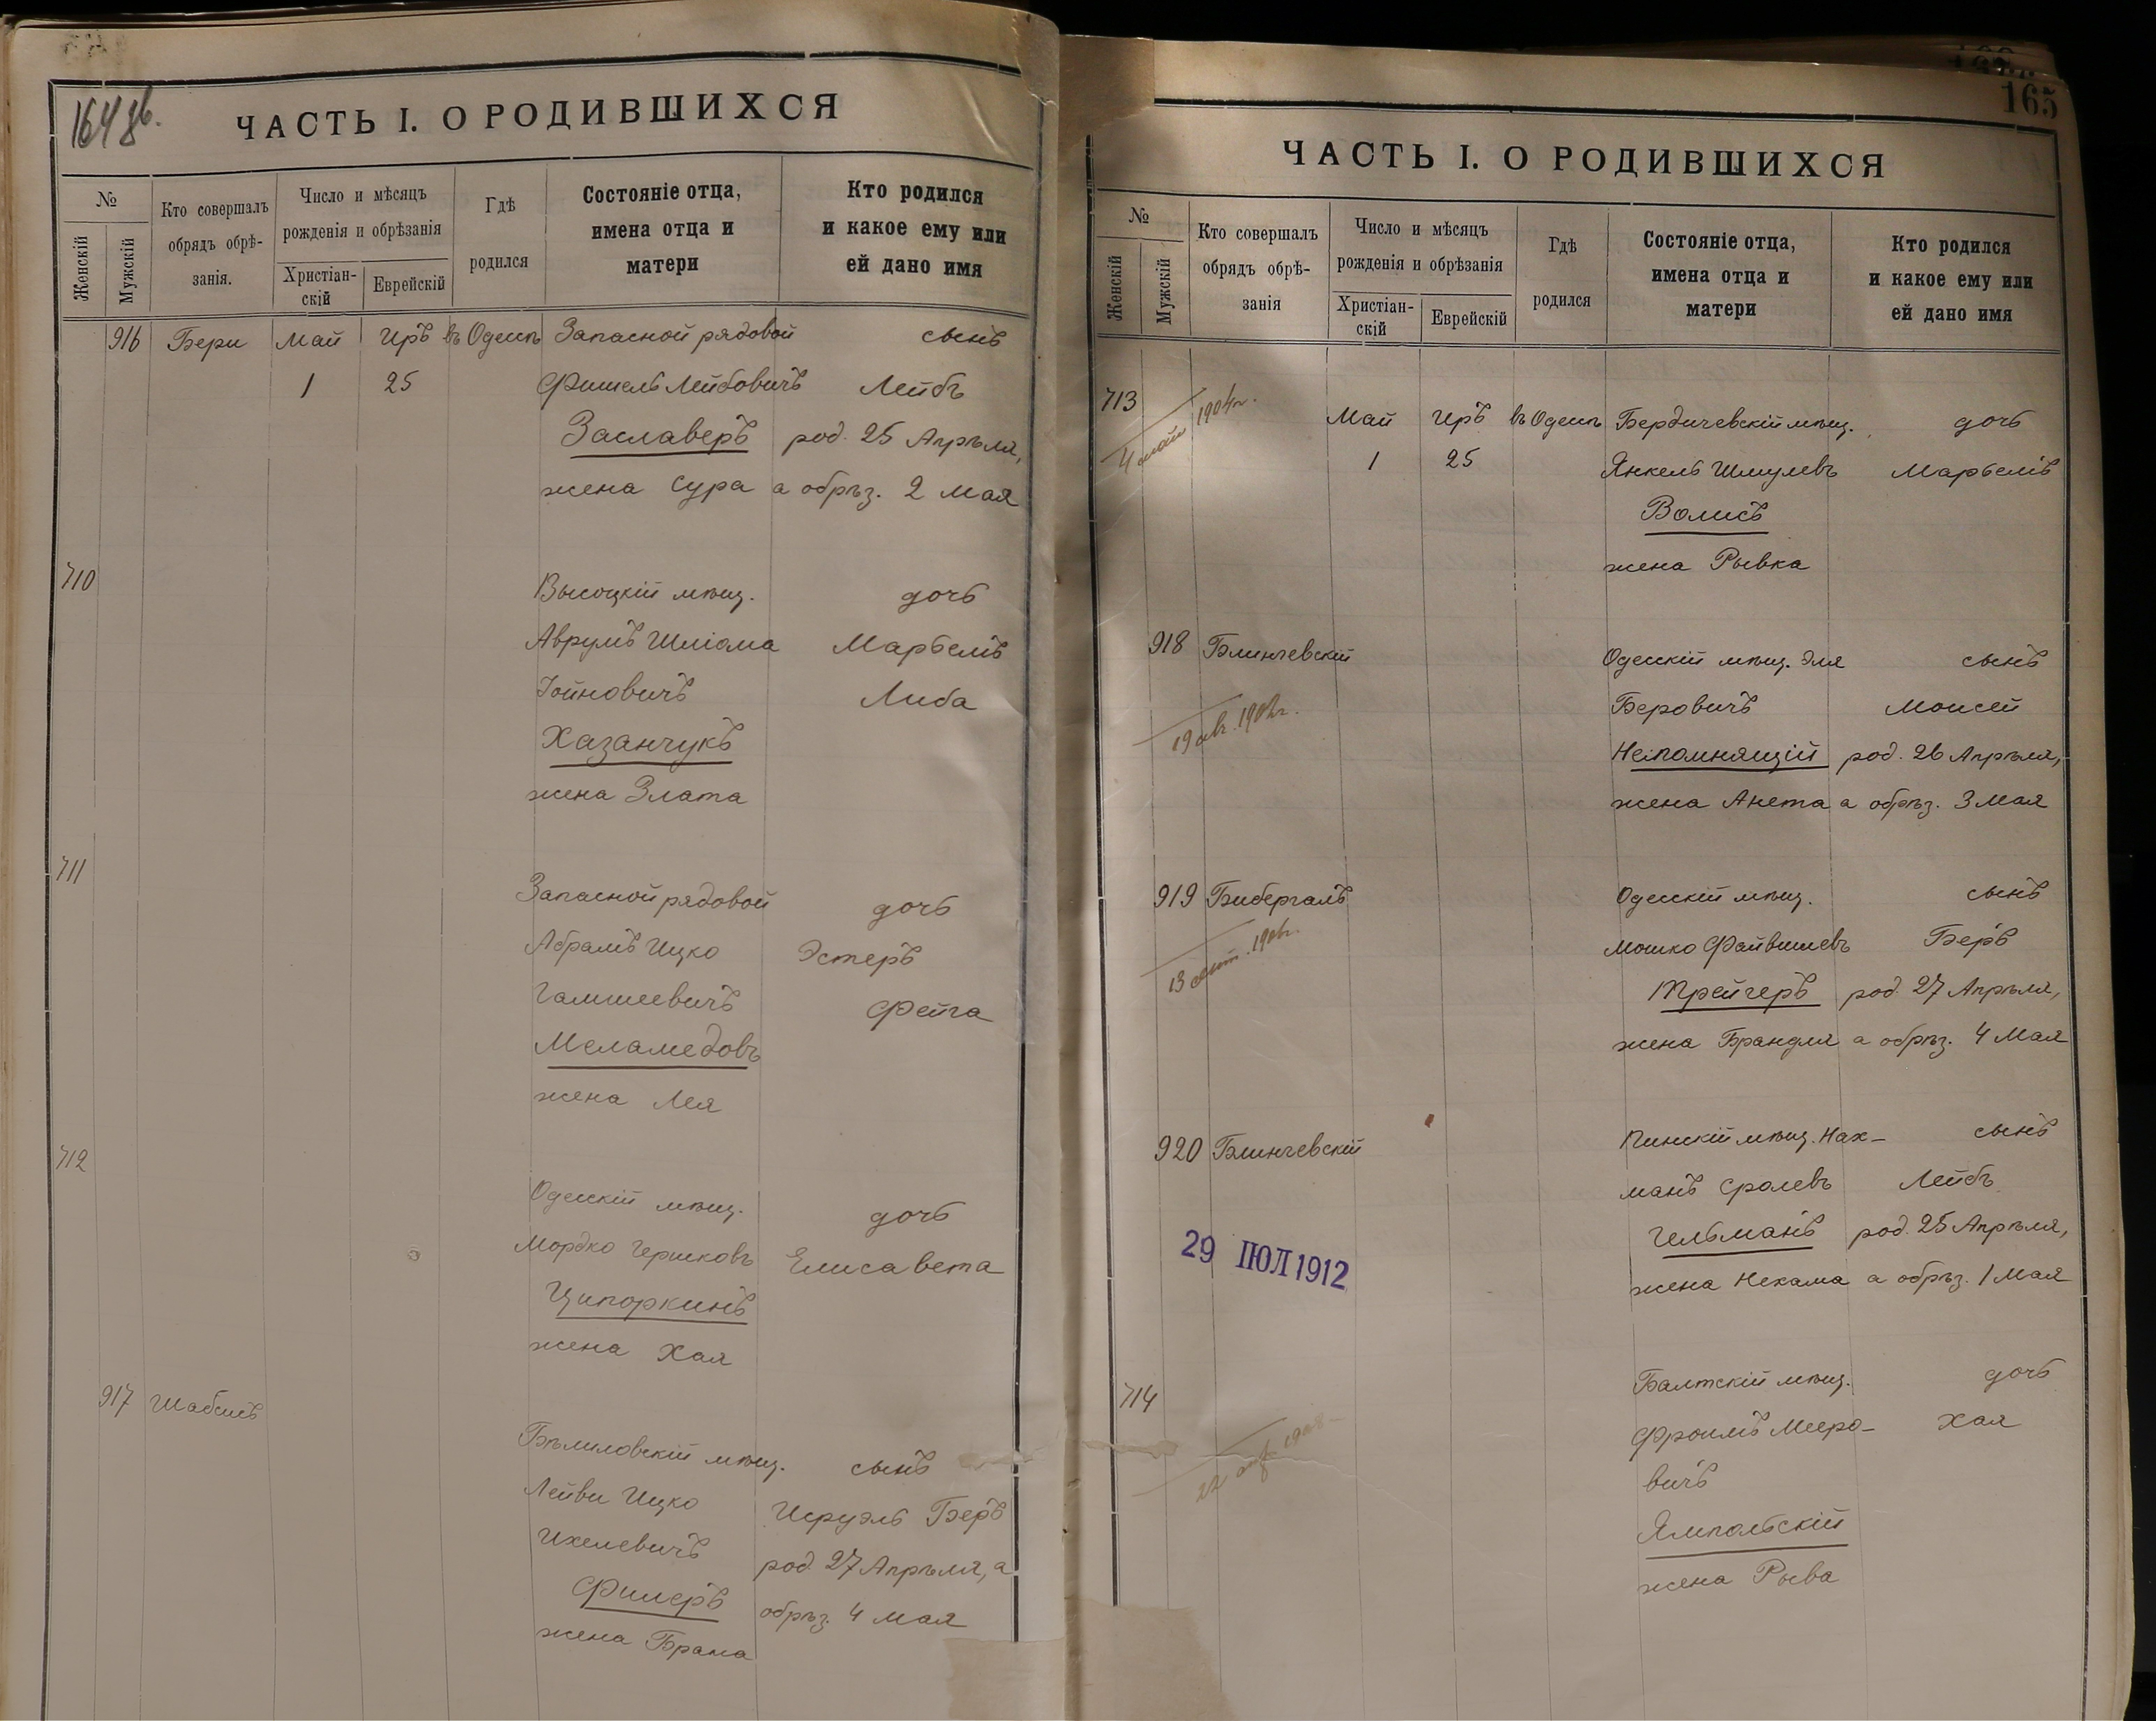 164 об.
ЧАСТЬ I. О РОДИВШИХСЯ
№
Женскій
Мужскій
Кто совершалъ
обрядъ обрѣ-
занія.
Число и мѣсяцъ
рожденія и обрѣзанія
Христіан-
скій
Еврейскій
Гдѣ
родился
Состояніе отца,
имена отца и
матери
Кто родился
и какое ему или
ей дано имя
916 Бери Май Иръ въ Одессѣ Запасной рядовой сынъ
1 25 Фишель Лейбовичъ Лейбъ
Заславеръ род. 25 Апрѣля,
жена Сура а обрѣз. 2 Мая
710
Высоцкій мѣщ. дочь
Аврумъ Шліома Марьемъ
Іойновичъ Либа
Хазанчукъ
жена Злата
711
Запасной рядовой дочь
Абрамъ Ицко Эстеръ
Гамшеевичъ Фейга
Меламедовъ
жена Лея
712
Одесскій мѣщ. дочь
Мордко Гершковъ Елисавета
Ципоркинъ
жена Хая
917 Шабсисъ
Бѣлиловскій мѣщ. сынъ
Лейви Ицко Исруэль Беръ
Ихелевичъ род. 27 Апрѣля, а
Фишеръ обрѣз. 4 Мая
жена Брана
165
ЧАСТЬ I. О РОДИВШИХСЯ
№
Женскій
Мужскій
Кто совершалъ
обрядъ обрѣ-
занія
Число и мѣсяцъ
рожденія и обрѣзанія
Христіан-
скій
Еврейскій
Гдѣ
родился
Состояніе отца,
имена отца и
матери
Кто родился
и какое ему или
ей дано имя
713
4 мая 1904г.
Май Иръ въ Одессѣ Бердичевскій мѣщ. дочь
1 25 Янкель Шмулевъ Марьемъ
Волисъ
жена Рывка
918 Блинчевскій Одесскій мѣщ. Эля сынъ
Беровичъ Моисей
19 авг. Непомнящій род. 26 Апрѣля,
жена Анета а обрѣз. 3 Мая
919 Бибергалъ Одесскій мѣщ. сынъ
Мошко Файвишевъ Беръ
13 сент. Трейгеръ род. 27 Апрѣля,
жена Брандля а обрѣз. 4 Мая
920 Блинчевскій Пинскій мѣщ. Нах- сынъ
манъ Сролевъ Лейбъ
29 ІЮЛ 1912 Гельманъ род. 25 Апрѣля,
жена Нехама а обрѣз. 1 Мая
714
Балтскій мѣщ. дочь
Фроимъ Мееро- Хая
22 1908
вичъ
Ямпольскій
жена Рыва